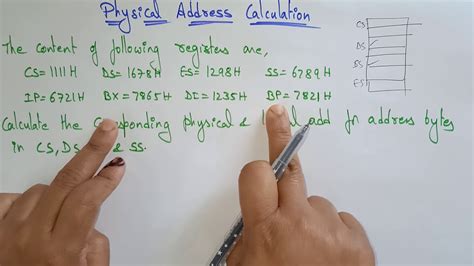 Physical Address Calculation
The content of following registers are,
CS=1111H DS=1678H ES=1298H SS=6789H
IP=6721H BX=7865H DI=1235H BP=7821H
Calculate the physical & add for address bytes
in CS, DS, & SS.
CS
DS
SS
ES